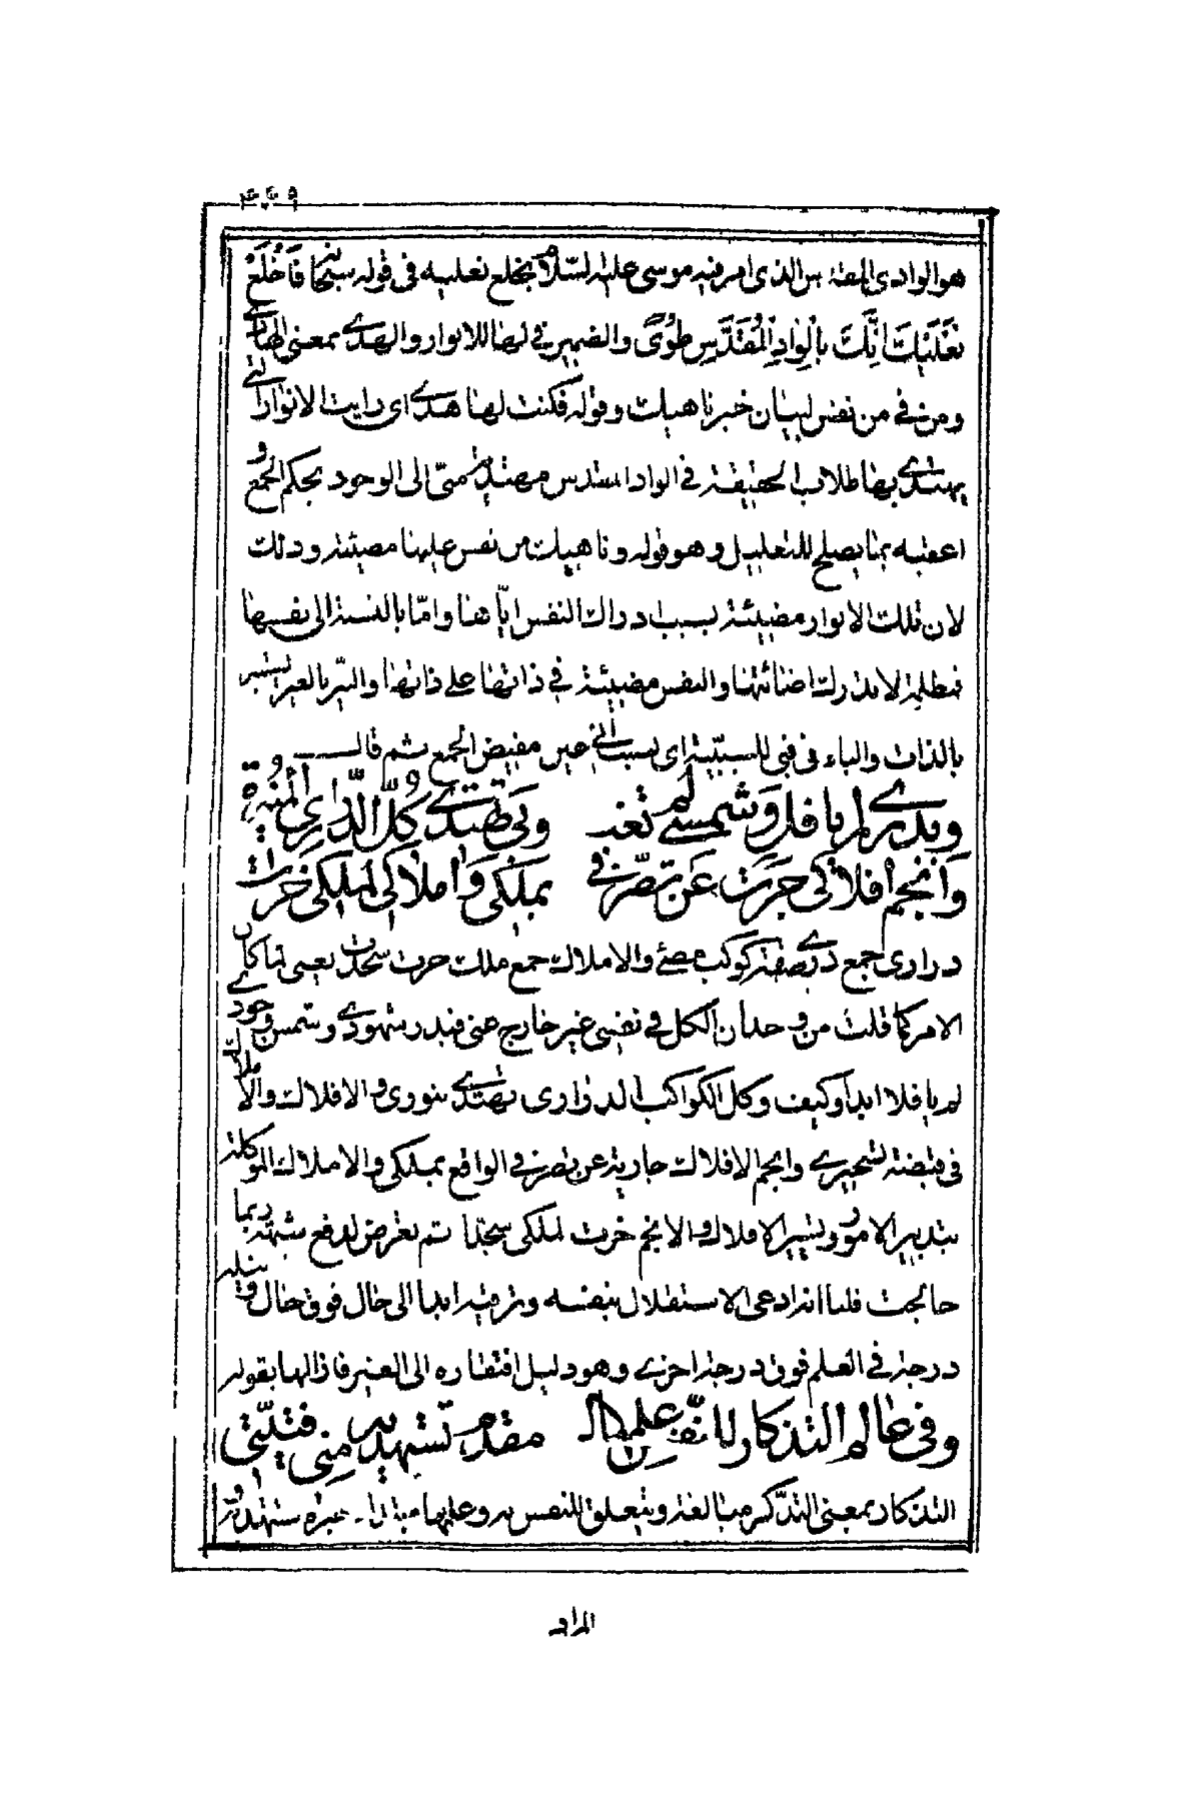 ۴۶۹
هو الوادى المقدس الذى امر فيه موسى عليه السّلام بخلع نعليه فى قوله سبحانه فَاخْلَعْ
نَعْلَيْكَ اِنَّكَ بِالْوادِ الْمُقَدَّسِ طُوًى والضمير فى لها للانوار والهدى بمعنى الهادى
ومن فى من نفس لبيان خبر ناهيك وقوله فكنت لها هدى اى رايت الانوار التى
يهتدى بها طلاب الحقيقة فى الواد المقدس مهتدية منّى الى الوجود بحكم الجمع و
اعقبه بما يصلح للتعليل وهو قوله وناهيك من نفس عليها مضيئة وذلك
لان تلك الانوار مضيئة بسبب ادراك النفس ايّاها وامّا بالنسبة الى نفسها
فمظلمة لا تدرك اضائتها والنفس مضيئة فى ذاتها على ذاتها والنيّر بالغير ليس نير
بالذات والباء فى فبى للسببيّة اى بسبب انى عين مفيض الجمع ثم قال
وبدرى لم يافل وشمسى لم تغب وبى تهتدى كلّ الدّرارى المنيرة
وانجم افلاكى جرت عن تصرّفى بملكى واملاكى لملكى خرّت
درارى جمع درى صفة كوكب مضئ والاملاك جمع ملك خرت سجدت يعنى لما كان
الامر كما قلت من وجدان الكل فى نفسى غير خارج عنى فبدر شهودى وشمس وجودى
لم يافلا ابدا وكيف وكل الكواكب الدرارى تهتدى بنورى والافلاك والاملاك
فى قبضة تسخيرى وانجم الافلاك جارية عن تصرفى الواقع بملكى والاملاك الموكلة
بتدبير الامور وتسيير الافلاك والانجم خرت لملكى سجدا ثم تعرض لدفع شبهة ربما
خالجت قلبا انه ادعى الاستقلال بنفسه وترقيه ابدا الى حال فوق حال ونيله
درجة فى العلم فوق درجة اخرى وهو دليل افتقاره الى الغير فازالها بقوله
وفى عالم التذكار للنّفس علمها الـ مقدّم تستهديه منى فتيتى
التذكار بمعنى التذكر مبالغة ويتعلق للنفس به وعلمها مبتدا خبره تستهديه و
المراد